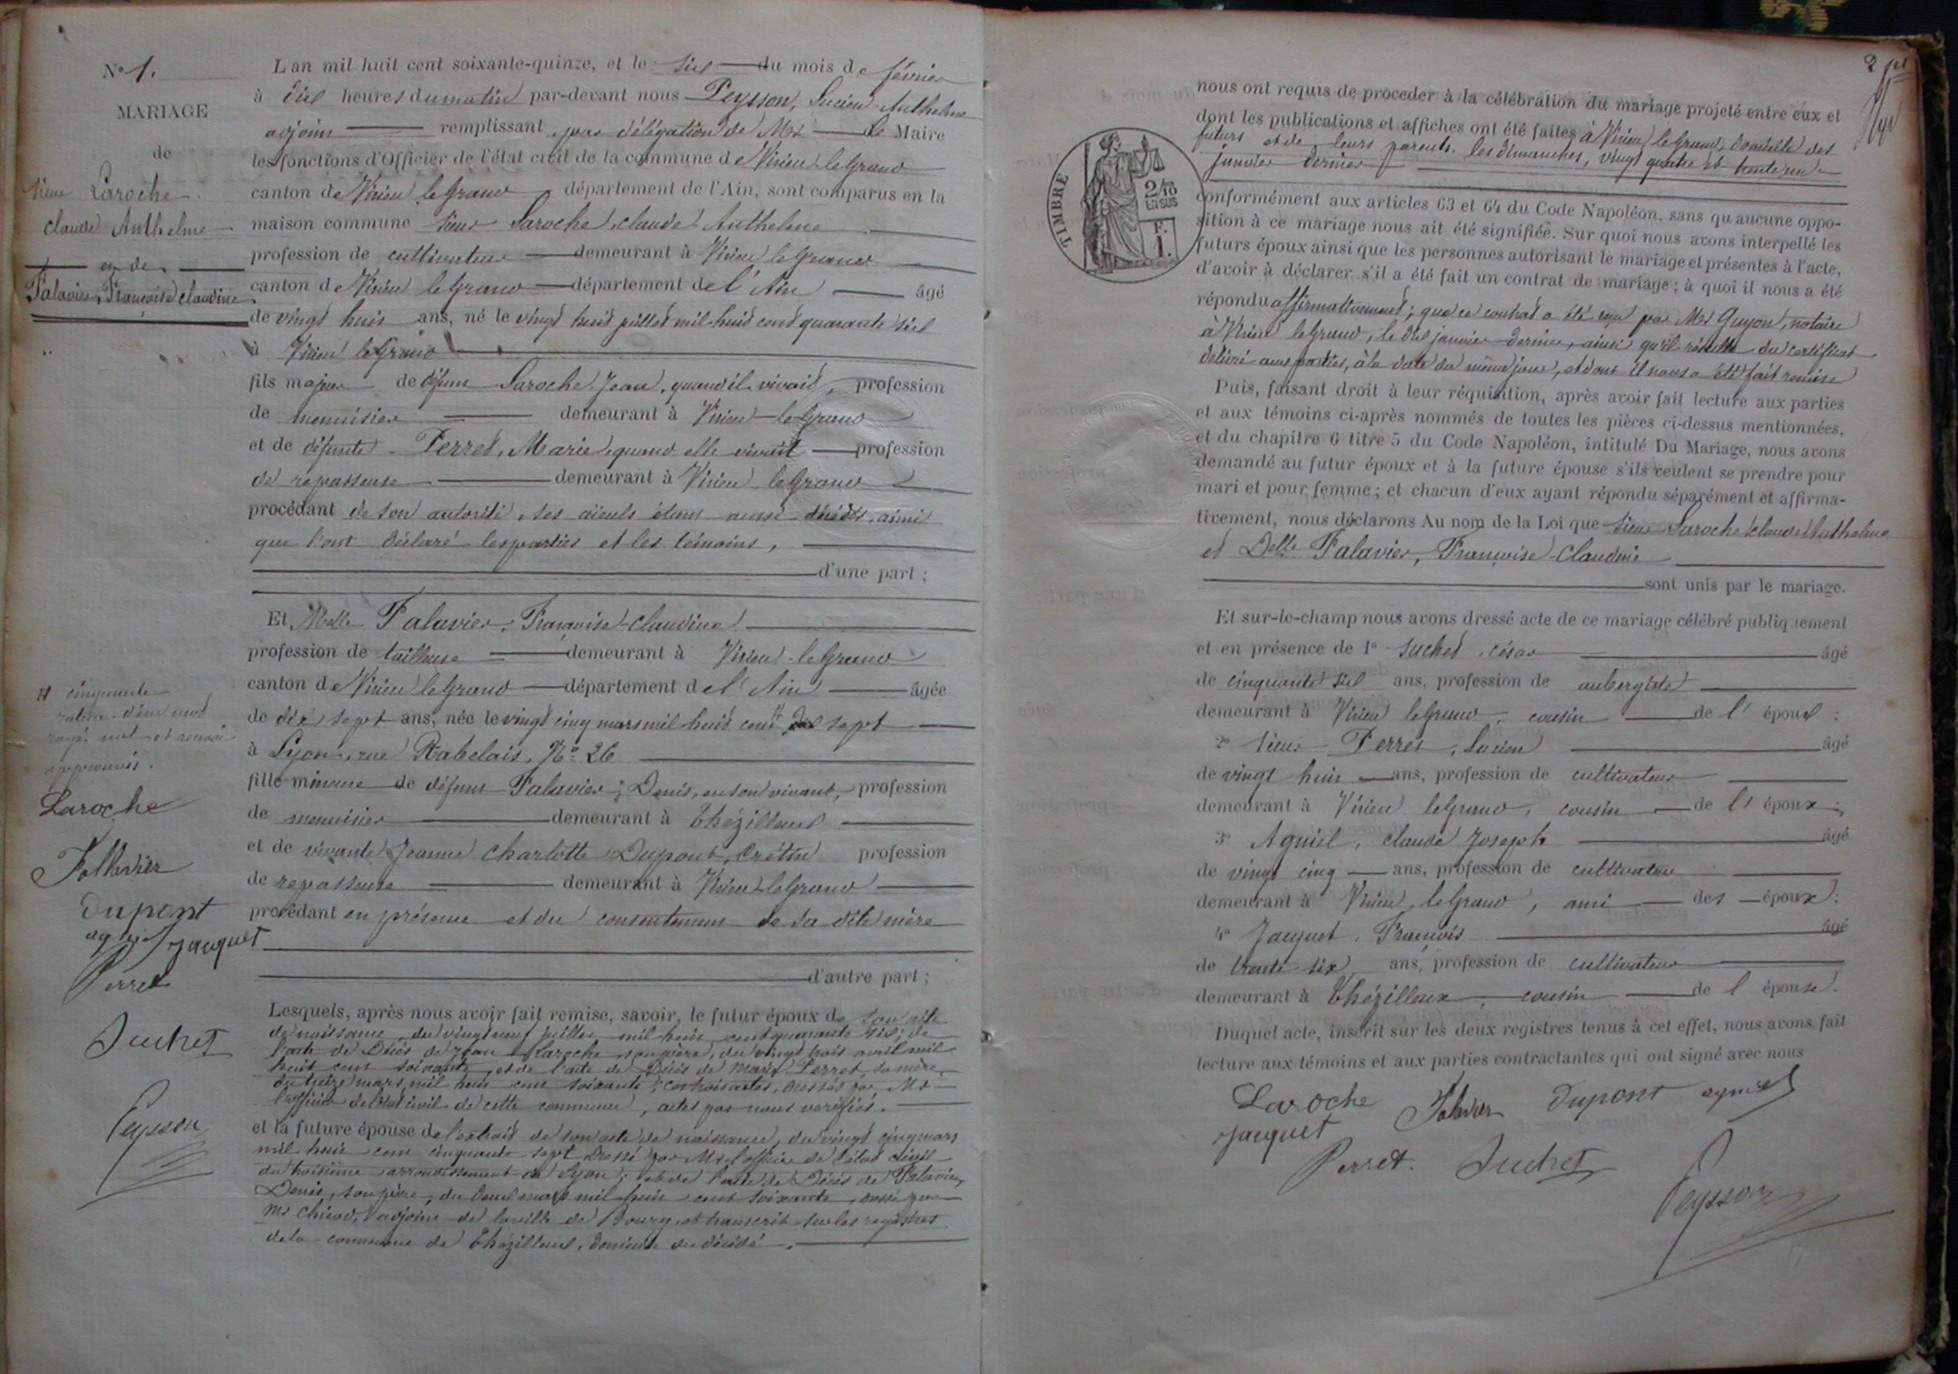 N° 1.
MARIAGE
de
sieur Laroche
Claude Anthelme
et de
Falavier, Françoise Claudine
L'an mil huit cent soixante-quinze, et le six du mois de février
à dix heures du matin par-devant nous Peysson, Lucien Anthelme
adjoint remplissant par délégation de Mr le Maire
les fonctions d'Officier de l'état civil de la commune de Virieu-le-Grand
canton de Virieu le Grand département de l'Ain, sont comparus en la
maison commune sieur Laroche, Claude Anthelme
profession de cultivateur demeurant à Virieu le Grand
canton de Virieu le Grand département de l'Ain âgé
de vingt huit ans, né le vingt huit juillet mil huit cent quarante six
à Virieu le Grand
fils majeur de défunt Laroche Jean, quand il vivait, profession
de menuisier demeurant à Virieu-le-Grand
et de défunte Perret, Marie, quand elle vivait profession
de repasseuse demeurant à Virieu le Grand
procédant de son autorité, ses aïeuls étant aussi décédés, ainsi
que l'ont déclaré les parties et les témoins,
d'une part ;
Et Melle Falavier, Françoise Claudine
profession de tailleuse demeurant à Virieu-le-Grand
canton de Virieu le Grand département de l'Ain âgée
de dix sept ans, née le vingt cinq mars mil huit cent # sept
à Lyon, rue Rabelais, N° 26
fille mineure de défunt Falavier, Denis, en son vivant, profession
de menuisier demeurant à Thézillieux
et de vivante Jeanne Charlotte Dupont Crétin profession
de repasseuse demeurant à Virieu-le-Grand
procédant en présence et du consentement de sa dite mère
d'autre part ;
Lesquels, après nous avoir fait remise, savoir, le futur époux de son acte
de naissance, du vingt neuf juillet mil huit cent quarante six ; de
l'acte de Décès de Jean Laroche, son père, du vingt trois avril mil
huit cent soixante, et de l'acte de Décès de Marie Perret, sa mère,
du treize mars mil huit cent soixante ; ces trois actes, dressés par Mr
l'officier de l'état civil de cette commune, actes par nous vérifiés.
et la future épouse de l'extrait de son acte de naissance, du vingt cinq mars
mil huit cent cinquante sept dressé par Mr l'officier de l'état civil
du troisième arrondissement de Lyon ; et de l'acte de Décès de Falavier,
Denis, son père, du mars mil huit cent soixante, dressé par
Mr adjoint de la ville de Bourg et transcrit sur les registres
de la commune de Thézillieux, domicile du décédé.
# cinquante
rature d'un mot
rayé nul et renvoi
approuvés.
Laroche
Fallavier
Dupont
agniel Jacquet
Perret
Suchet
Peysson
2
nous ont requis de procéder à la célébration du mariage projeté entre eux et
dont les publications et affiches ont été faites à Virieu le Grand, domicile des
futurs et de leurs parents, les dimanches, vingt quatre et trente un
janvier dernier
TIMBRE
2/10
EN SUS
F.
1.
conformément aux articles 63 et 64 du Code Napoléon, sans qu'aucune oppo-
sition à ce mariage nous ait été signifiée. Sur quoi nous avons interpellé les
futurs époux ainsi que les personnes autorisant le mariage et présentes à l'acte,
d'avoir à déclarer s'il a été fait un contrat de mariage ; à quoi il nous a été
répondu affirmativement ; que ce contrat a été reçu par Mr Guyon, notaire
à Virieu le Grand, le dix janvier dernier, ainsi qu'il résulte du certificat
délivré aux parties, à la date du même jour, et dont il nous a été fait remise
Puis, faisant droit à leur réquisition, après avoir fait lecture aux parties
et aux témoins ci-après nommés de toutes les pièces ci-dessus mentionnées,
et du chapitre 6 titre 5 du Code Napoléon, intitulé Du Mariage, nous avons
demandé au futur époux et à la future épouse s'ils veulent se prendre pour
mari et pour femme ; et chacun d'eux ayant répondu séparément et affirma-
tivement, nous déclarons Au nom de la Loi que sieur Laroche Claude Anthelme
et Delle Falavier, Françoise Claudine
sont unis par le mariage.
Et sur-le-champ nous avons dressé acte de ce mariage célébré publiquement
et en présence de 1° Suchet, César âgé
de cinquante six ans, profession de aubergiste
demeurant à Virieu le Grand, cousin de l'époux ;
2° sieur Perret, Lucien âgé
de vingt huit ans, profession de cultivateur
demeurant à Virieu le Grand, cousin de l'époux ;
3° Agniel, Claude Joseph âgé
de vingt cinq ans, profession de cultivateur
demeurant à Virieu le Grand, ami des époux ;
4° Jacquet, François âgé
de trente six ans, profession de cultivateur
demeurant à Thézillieux, cousin de l'épouse.
Duquel acte, inscrit sur les deux registres tenus à cet effet, nous avons fait
lecture aux témoins et aux parties contractantes qui ont signé avec nous
Laroche Falavier Dupont agniel
Jacquet
Perret. Suchet
Peysson